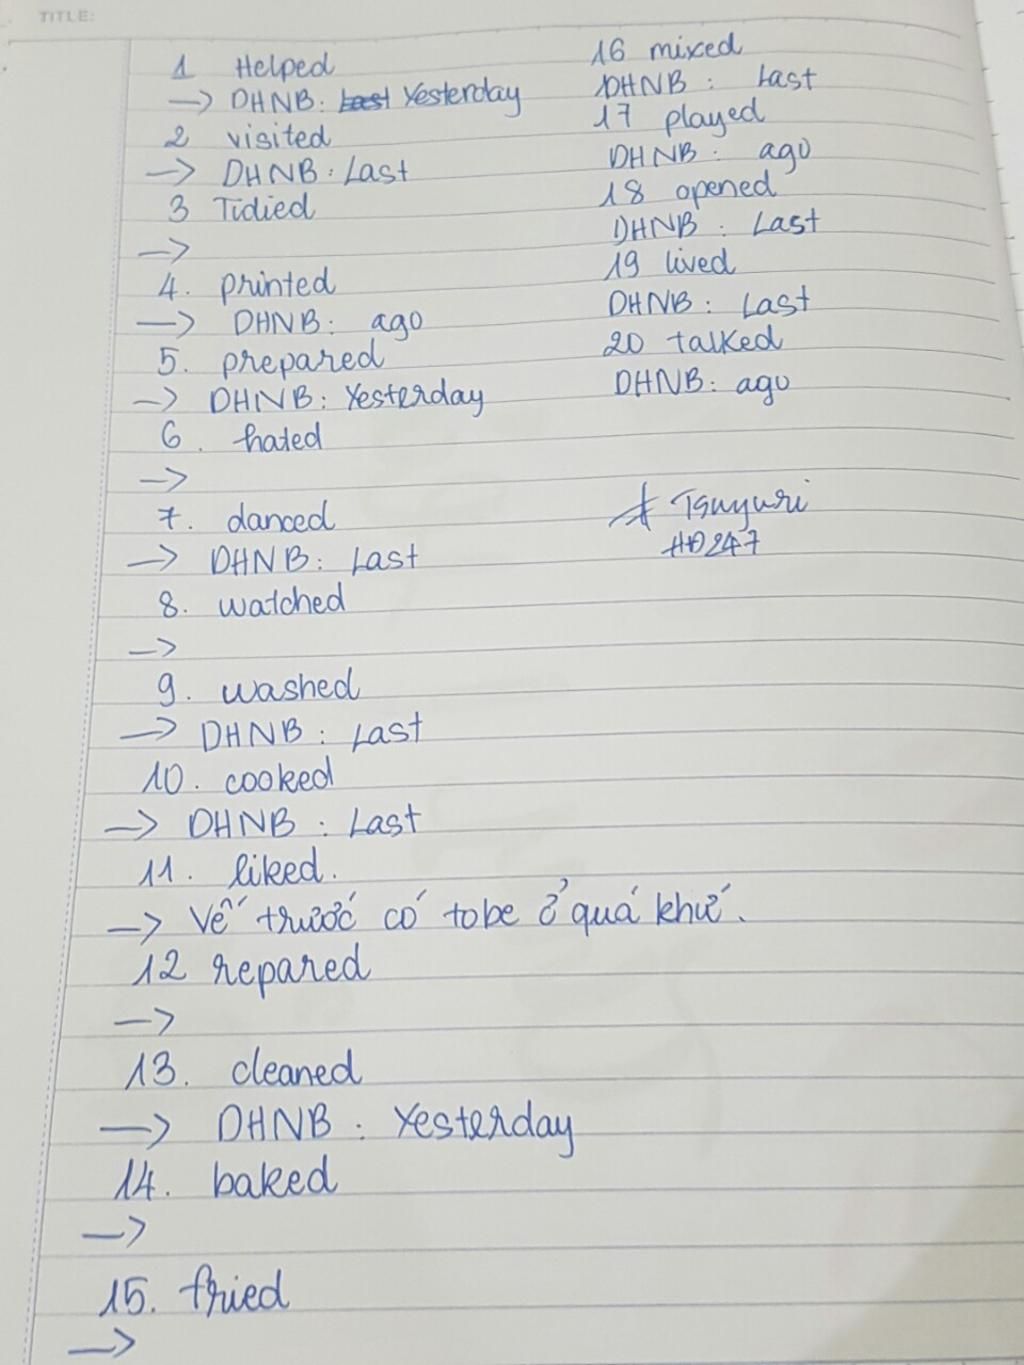 TITLE:
1 Helped
→ DHNB: Last Yesterday
2 visited
→ DHNB: Last
3 Tidied
→
4. printed
→ DHNB: ago
5. prepared
→ DHNB: Yesterday
6. hated
→
7. danced
→ DHNB: Last
8. watched
→
9. washed
→ DHNB: Last
10. cooked
→ DHNB: Last
11. liked.
→ Vế trước có tobe ở quá khứ.
12 repared
→
13. cleaned
→ DHNB: Yesterday
14. baked
→
15. fried
→
16 mixed
DHNB: Last
17 played
DHNB: ago
18 opened
DHNB: Last
19 lived
DHNB: Last
20 talked
DHNB: ago
Tsuyuri
HĐ247